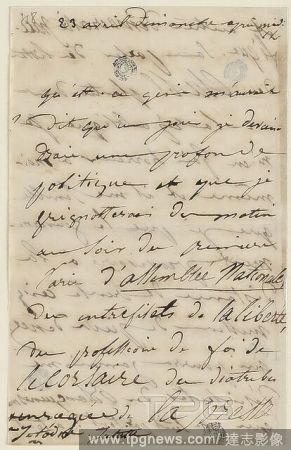 23 avril Dimanche après midi
qu'est-ce qui m'aurait
dit qu'un jour je devien
drais une profonde
politique et que je
grignotterais du matin
au soir du première
Paris d'assemblée Nationale
des entrefilets de la liberté,
du profession de foi de
le corsaire du diatribes
enragées de la presse
www.tpgnews.com/達志影像